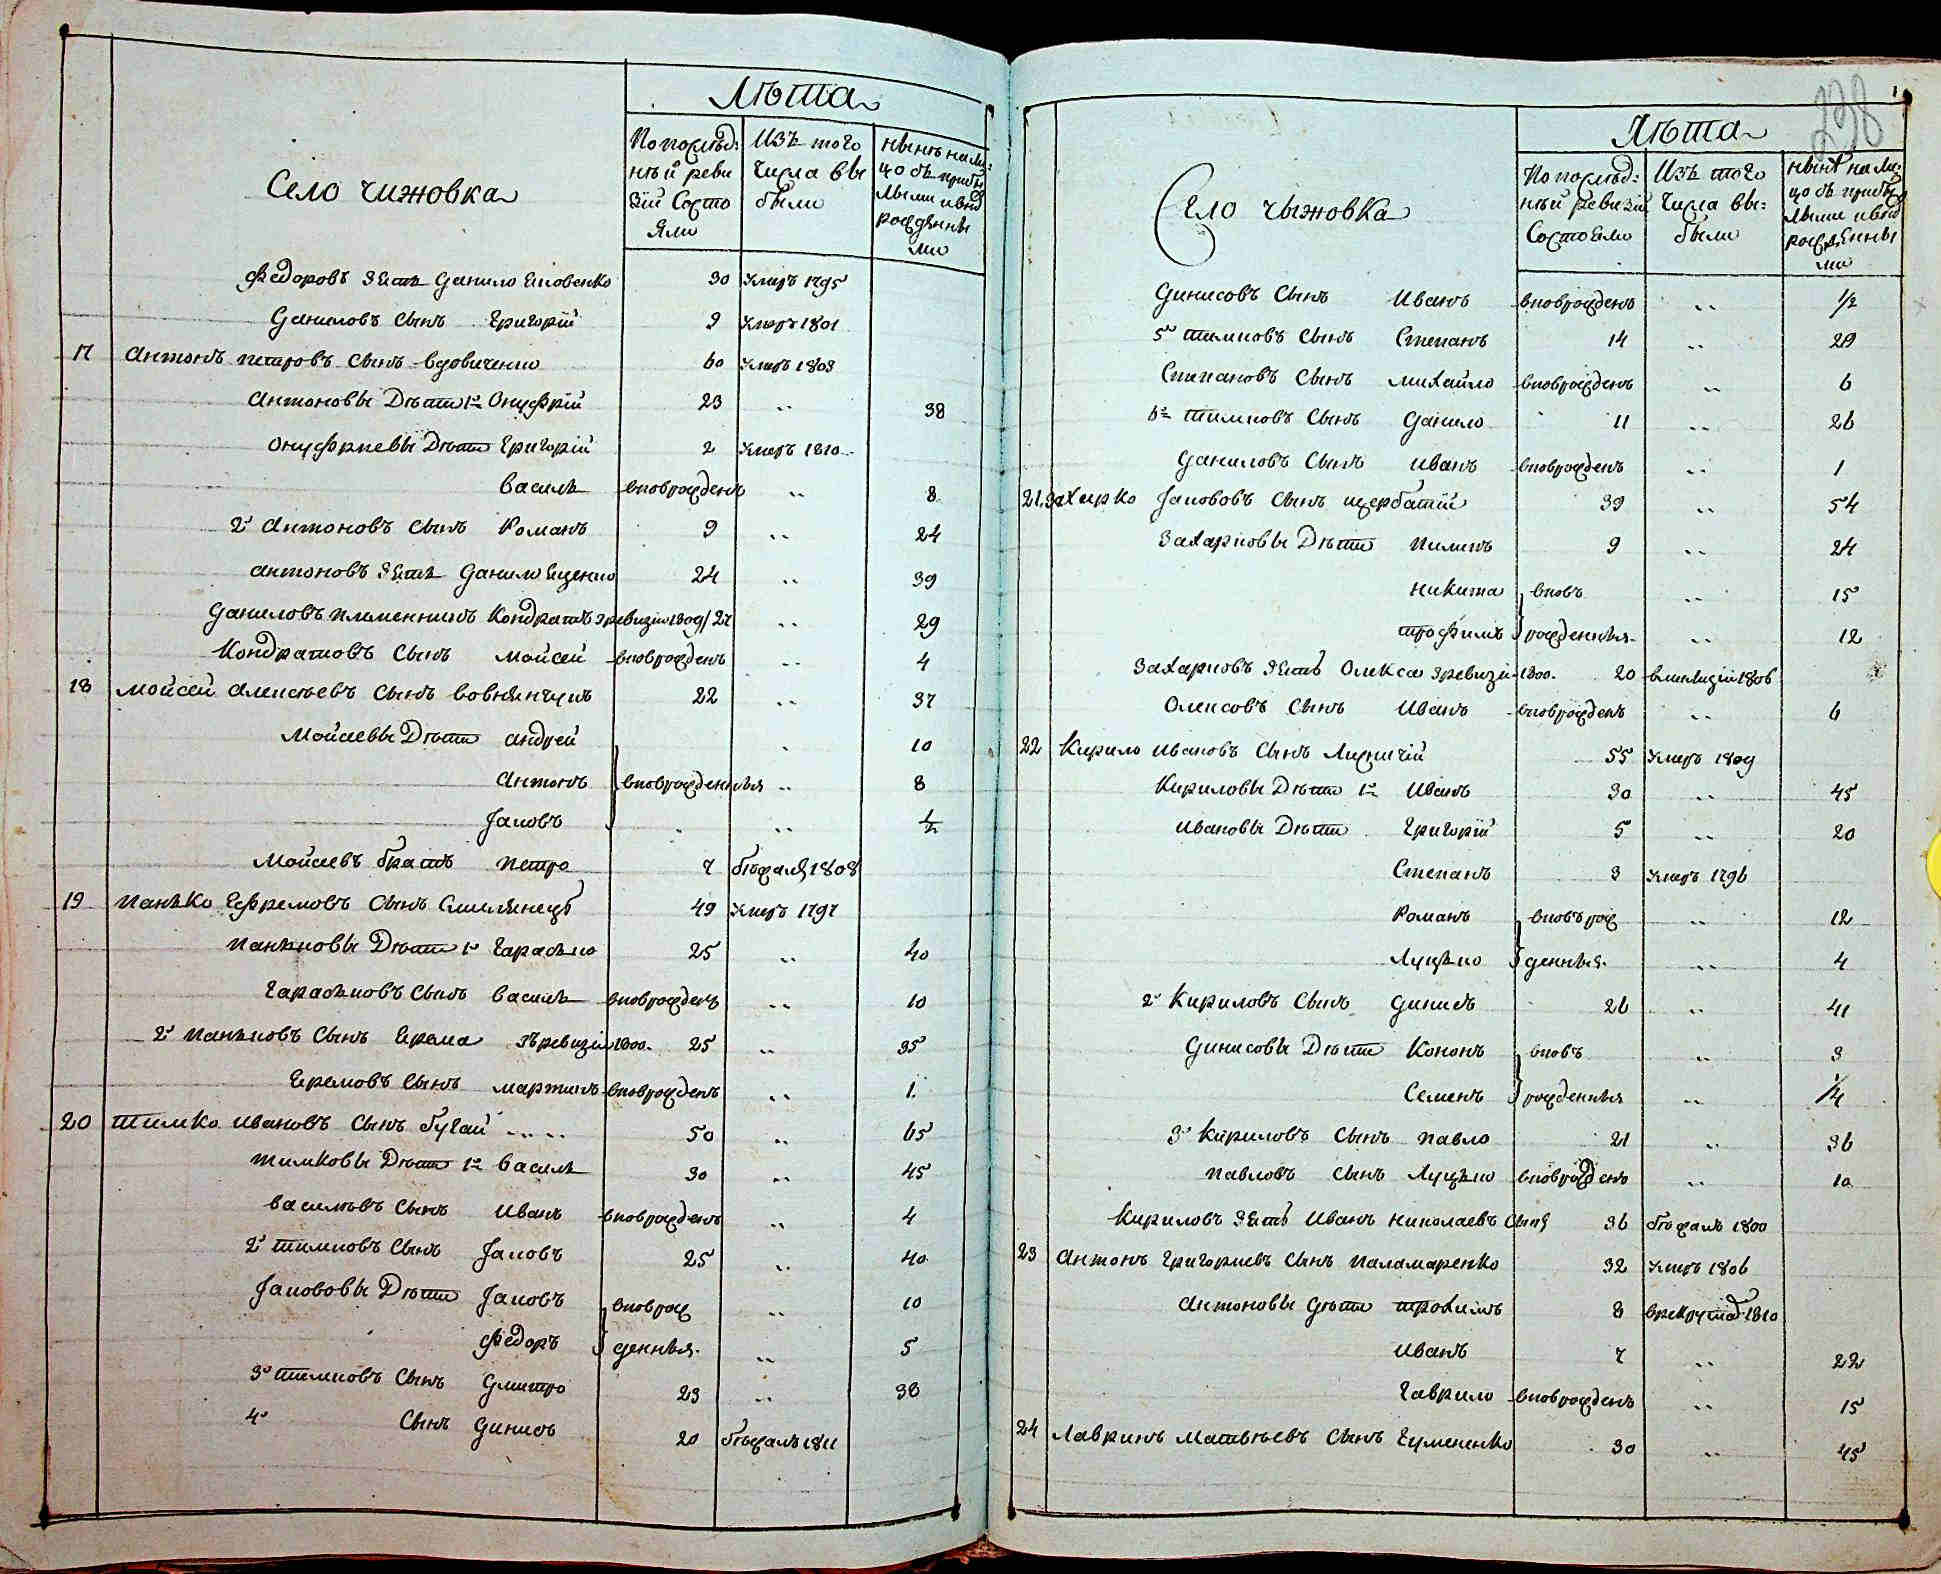 Село Чижовка
Лѣта
По послѣд: нѣй реви зіи Состо яли
Изъ того числа вы были
Нынѣ на ли: цо съ прибы лыми и внѡ рожденны ми
Федоровъ зять Данило Яковенко 30 умеръ 1795
Даниловъ сынъ Григорій 9 умеръ 1801
17 Антонъ Петровъ сынъ Вдовиченко 60 умеръ 1803
Антоновы Дѣти 1й Онуфрій 23 „ 38
Онуфриевы Дѣти Григорій 2 умеръ 1810
Василь вновврожденъ „ 8
2й Антоновъ сынъ Романъ 9 „ 24
Антоновъ зять Данило Яценко 24 „ 39
Даниловъ племенникъ Кондратъ зревизіи 1809/27 „ 29
Кондратовъ сынъ Мойсей вноврожденъ „ 4
18 Мойсей Алексѣевъ сынъ 22 „ 37
Мойсеевы Дѣти Андрей „ 10
Антонъ вноврожденныя „ 8
Яковъ „ 1/2
Мойсеевъ братъ Петро 7 бѣжалъ 1808
19 Панько Ефремовъ сынъ Смилянецъ 49 умеръ 1797
Паньковы Дѣти 1й Гарасько 25 „ 40
Гараськовъ сынъ Василь вноврожденъ „ 10
2й Паньковъ сынъ Ерема зъревизіи 1800. 25 „ 35
Еремовъ сынъ Мартинъ вноврожденъ „ 1.
20 Тимко Ивановъ сынъ Бугай 50 „ 65
Тимковы Дѣти 1й Василь 30 „ 45
Васильевъ сынъ Иванъ вноврожденъ „ 4
2й Тимковъ сынъ Яковъ 25 „ 40
Якововы Дѣти Яковъ вноврож „ 10
Федоръ денныя. „ 5
3й Тимковъ сынъ Дмитро 23 „ 38
4й сынъ Динисъ 20 бѣжалъ 1811
238
Село Чыжовка
Лѣта
По послѣд: нѣй ревизіи Состояли
Изъ того числа вы: были
Нынѣ на ли: цо съ прибы лыми и внѡ рожденны ми
Динисовъ сынъ Иванъ вноврожденъ „ 1/2
5й Тимковъ сынъ Степанъ 14 „ 29
Степановъ сынъ Михайло вноврожденъ „ 6
6й Тимковъ сынъ Данило 11 „ 26
Даниловъ сынъ Иванъ вноврожденъ „ 1
21. Захарко Якововъ сынъ Щербатій 39 „ 54
Захарковы Дѣти Пилипъ 9 „ 24
Никита вновъ „ 15
Трофимъ рожденныя. „ 12
Захарковъ зять Олекса зревизіи 1800. 20 1806
Олексовъ сынъ Иванъ вноврожденъ „ 6
22 Кирило Ивановъ сынъ Лисничій 55 умеръ 1809
Кириловы Дѣти 1й Иванъ 30 „ 45
Ивановы Дѣти Григорій 5 „ 20
Степанъ 3 умеръ 1796
Романъ вновърож „ 12
Луцько денныя. „ 4
2й Кириловъ сынъ Динисъ 26 „ 41
Динисовы Дѣти Кононъ вновъ „ 3
Семенъ рожденныя „ 1/4
3й Кириловъ сынъ Павло 21 „ 36
Павловъ сынъ Луцько вноврожденъ „ 10
Кириловъ зять Иванъ Николаевъ сынъ 36 бѣжалъ 1800
23 Антонъ Григориевъ сынъ Паламаренко 32 умеръ 1806
Антоновы Дѣти Трохимъ 8 врекруты 1810
Иванъ 7 „ 22
Гаврило вноврожденъ „ 15
24 Лавринъ Матвѣевъ сынъ Гумененко 30 „ 45